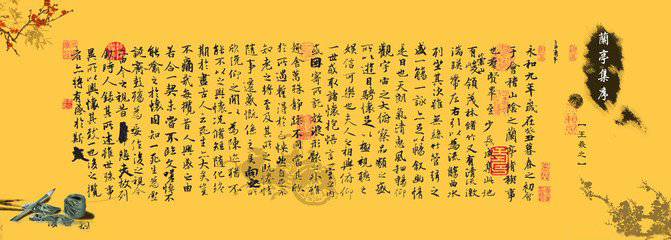 蘭亭集序
【王羲之】
永和九年歲在癸丑暮春之初會
于會稽山陰之蘭亭脩稧事
也羣賢畢至少長咸集此地
有崇山峻領茂林脩竹又有清流激
湍暎帶左右引以為流觴曲水
列坐其次雖無絲竹管弦之
盛一觴一詠亦足以暢敘幽情
是日也天朗氣清惠風和暢仰
觀宇宙之大俯察品類之盛
所以遊目騁懷足以極視聽之
娛信可樂也夫人之相與俯仰
一世或取諸懷抱悟言一室之內
或因寄所託放浪形骸之外雖
趣舍萬殊靜躁不同當其欣
於所遇蹔得於己怏然自足不
知老之將至及其所之既惓情
隨事遷感慨係之矣向之所
欣俛仰之間以為陳迹猶不
能不以之興懷況脩短隨化終
期於盡古人云死生亦大矣豈
不痛哉每攬昔人興感之由
若合一契未嘗不臨文嗟悼不
能喻之於懷固知一死生為虛
誕齊彭殤為妄作後之視今
亦由今之視昔悲夫故列
敘時人錄其所述雖世殊事
異所以興懷其致一也後之攬
者亦將有感於斯文